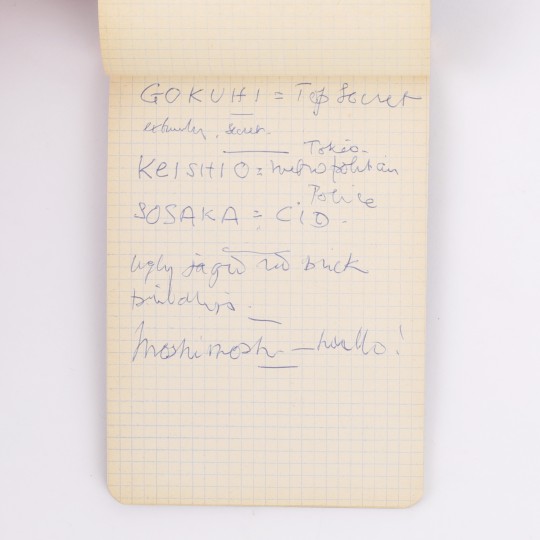 GOKUHI = Top Secret
extremely, secret.
Tokio.
KEISHIO = metropolitan
Police
SOSAKA = CID.
Ugly jagged red brick
buildings.
Moshimoshi — hullo!